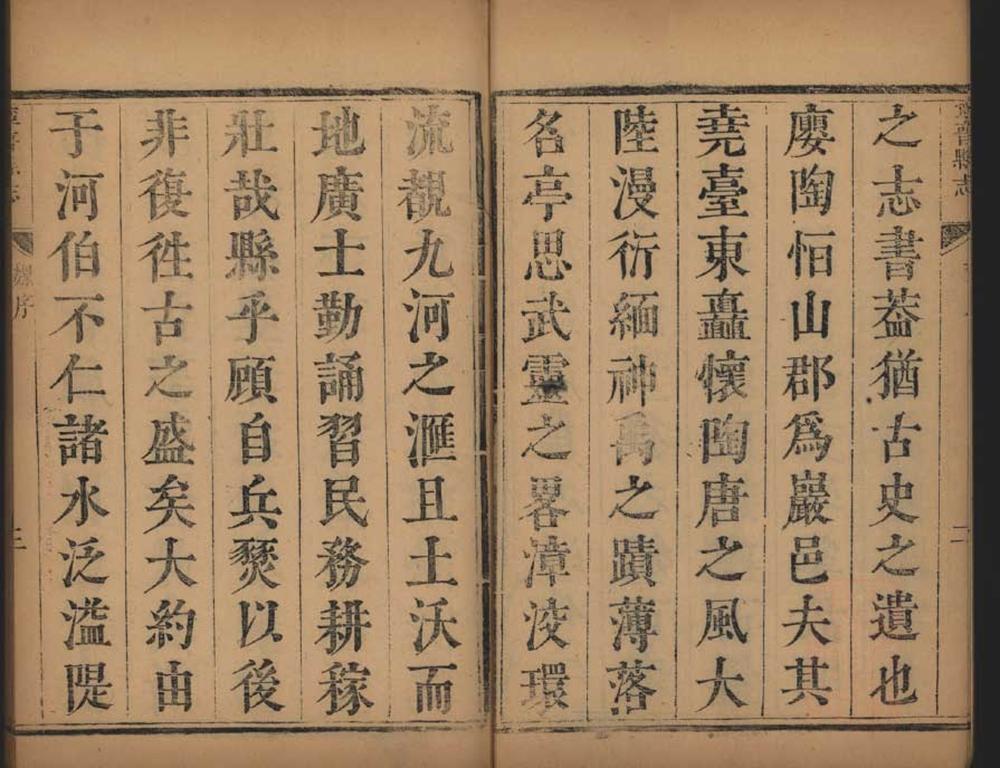 之志書葢猶古史之遺也
廮陶恒山郡爲巖邑夫其
堯臺東矗懷陶唐之風大
陸漫衍緬神禹之蹟薄落
名亭思武靈之畧漳洨環
流覩九河之滙且土沃而
地廣士勤誦習民務耕稼
壯哉縣乎顧自兵燹以後
非復徃古之盛矣大約由
于河伯不仁諸水泛溢隄
縣志
二
序
三